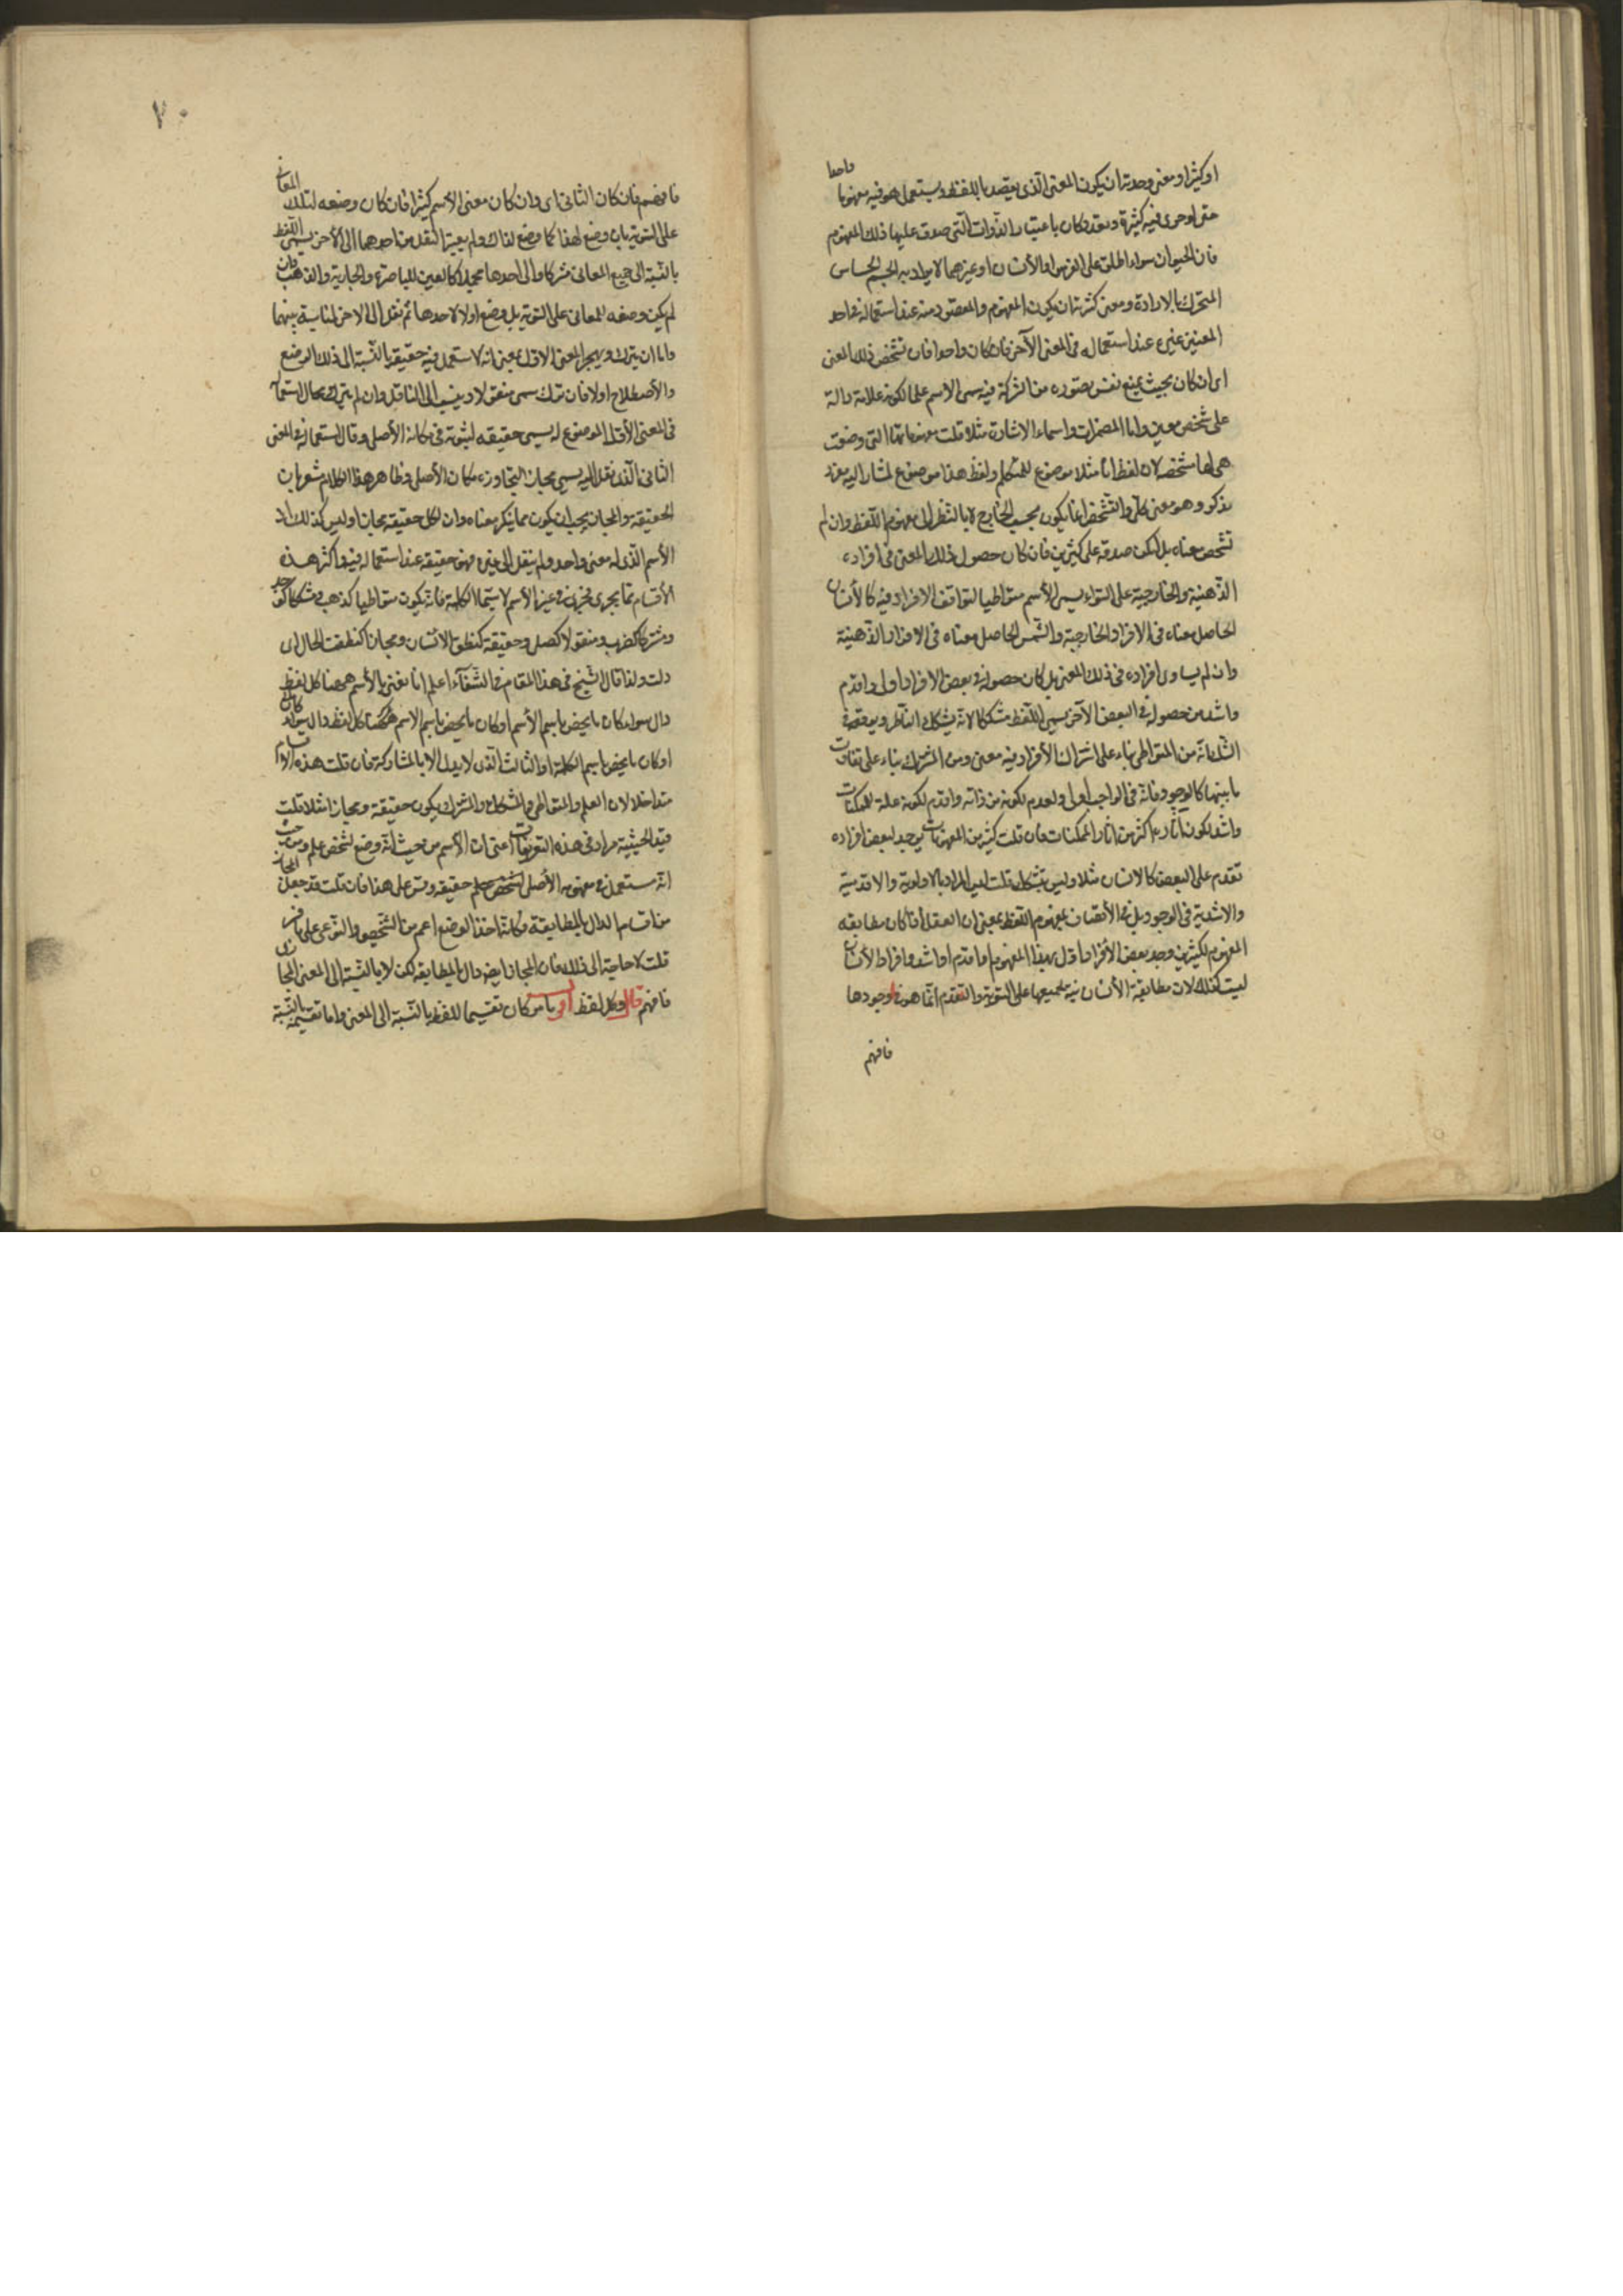 او كثيرا ومعنى وحدته ان يكون المعنى الذى يقصد باللفظ ويستعمل هو فيه مفهوما واحدا
متى لوحرى فيه كثرة وتعدد كان باعتبار الذوات التى صدق عليها ذلك المفهوم
فان الحيوان سواء اطلق على الفرس او الأنسان او غيرهما لا يراد به الجسم الحساس
المتحرك بالارادة ومعنى كثرته ان يكون المفهوم والمقصود منه عند استعماله فى احد
المعنيين غيره عند استعماله فى المعنى الآخر فان كان واحدا فان تشخص ذلك المعنى
اى ان كان بحيث يمنع نفس تصوره من الشركة فيه سمى الاسم علما لكونه علامة دالة
على شخص معين واما المضمرات واسماء الاشارة مثلا قلت مفهوماتها التى وضعت
هى لها مشخصه لان لفظ انا مثلا موضوع للمتكلم ولفظ هذا موضوع لمشار اليه مفرد
مذكر وهو معنى كلى والتشخص انما يكون بحسب الخارج لا بالنظر الى مفهوم اللفظ وان لم
تشخص معناه بل امكن صدقه على كثيرين فان كان حصول ذلك المعنى فى افراده
الذهنية والخارجية على السواء يسمى الأسم متواطيا لتوافق الافراد فيه كالأنسان
الحاصل معناه فى الافراد الخارجية والشمس الحاصل معناه فى الافراد الذهنية
وان لم يساوى افراده فى ذلك المعنى بل كان حصوله فى بعض الافراد اولى واقدم
واشد من حصوله فى البعض الآخر يسمى اللفظ مشككا لانه يشكك الناظر ويوقعه فى
الشك انه من المتواطى بناء على اشتراك الأفراد فيه معنى ومن المشترك بناء على تفاوت
ما بينها كالوجود فانه فى الواجب اولى ولعدم لكونه من ذاته واقدم لكونه علة للممكنات
واشد لكون آثاره اكثر من اثار الممكنات فان قلت كثير من المفهومات يوجد لبعض افراده
تقدم على البعض كالانسان مثلا وليس بمشكك قلت ليس المراد بالاولوية والاقدمية
والاشدية فى الوجود بل فى الأتصاف بمفهوم اللفظ بمعنى ان العقل اذا كان مطابقه
المفهوم لكثيرين وجد بعض الأفراد اولى بهذا المفهوم او اقدم او اشد وافراد الأنسان
ليست كذلك لان مطابقة الأنسان لجميعها على السوية والتقدم انما هو فى وجودها
فافهم
٢٠
فافهم فان كان الثانى اى وان كان معنى الأسم كثيرا فان كان وضعه لتلك المعانى
على السوية بان وضع لهذا كما وضع لذاك ولم يعتبر النقل من احدهما الى الأخر يسمى اللفظ
بالنسبة الى جميع المعانى مشتركا والى احدها مجملا كالعين للباصرة والجارية والذهب وان
لم يكن وضعه للمعانى على السوية بل وضع اولا لاحدها ثم نقل الى الاخر لمناسبة بينهما
واما ان يترك ويهجر المعنى الاول بمعنى انه لا يستعمل فيه حقيقة بالنسبة الى ذلك الوضع
والأصطلاح اولا فان ترك سمى منقولا وينسب الى الناقل وان لم يترك فحال استعماله
فى المعنى الأول الموضوع له يسمى حقيقة لثبوته فى مكانه الأصلى وحال استعماله فى المعنى
الثانى الذى نقل اليه يسمى مجازا لتجاوزه مكان الأصلى وظاهر هذا الكلام مشعر بان
الحقيقة والمجاز يجب ان يكون مما يتكثر معناه وان لكل حقيقة مجازا وليس كذلك اذ
الأسم الذى له معنى واحد ولم ينقل الى غيره فهو حقيقة عند استعماله فيه واكثر هذه
الأقسام مما يجرى فى غير الأسم لا سيما الكلمة فانه يكون متواطيا كذهب ومشككا كوجد
ومشتركا كضرب ومنقولا كصلى وحقيقة كنطق الانسان ومجازا كنطقت الحال اى
دلت ولذا قال الشيخ فى هذا المقام فى الشفآء اعلم انا نعنى بالأسم ههنا كل لفظ
دال سواء كان ما يخص باسم الأسم او كان ما يخص باسم الاسم ههنا كل لفظ دال سواء كان
او كان ما يخص باسم الكلمة او الثالث الذى لا يدل الا بالمشاركة فان قلت هذه الاقسام
متداخلا لان العلم والمتواطى والمشكك والمشترك يكون حقيقة ومجازا مثلا قلت
قيد الحيثية مراد فى هذه التعريفات اعنى ان الأسم من حيث انه وضع لشخص علم ومن حيث
انه مستعمل فى مفهومه الأصلى حقيقه وقس على هذا فان قلت قد جعل المجاز
من اقسام الدال بالمطابقة وكانه اخذ الوضع اعم من الشخصى والنوعى على ما فسر
قلت لا حاجة الى ذلك فان المجاز ايضا دال بالمطابقه لكن لا بالنسبة الى المعنى المجازى
فافهم قال وكل لفظ اقول ما مر كان تقسيما للفظ بالنسبة الى المعنى واما تقسيمه بالنسبة